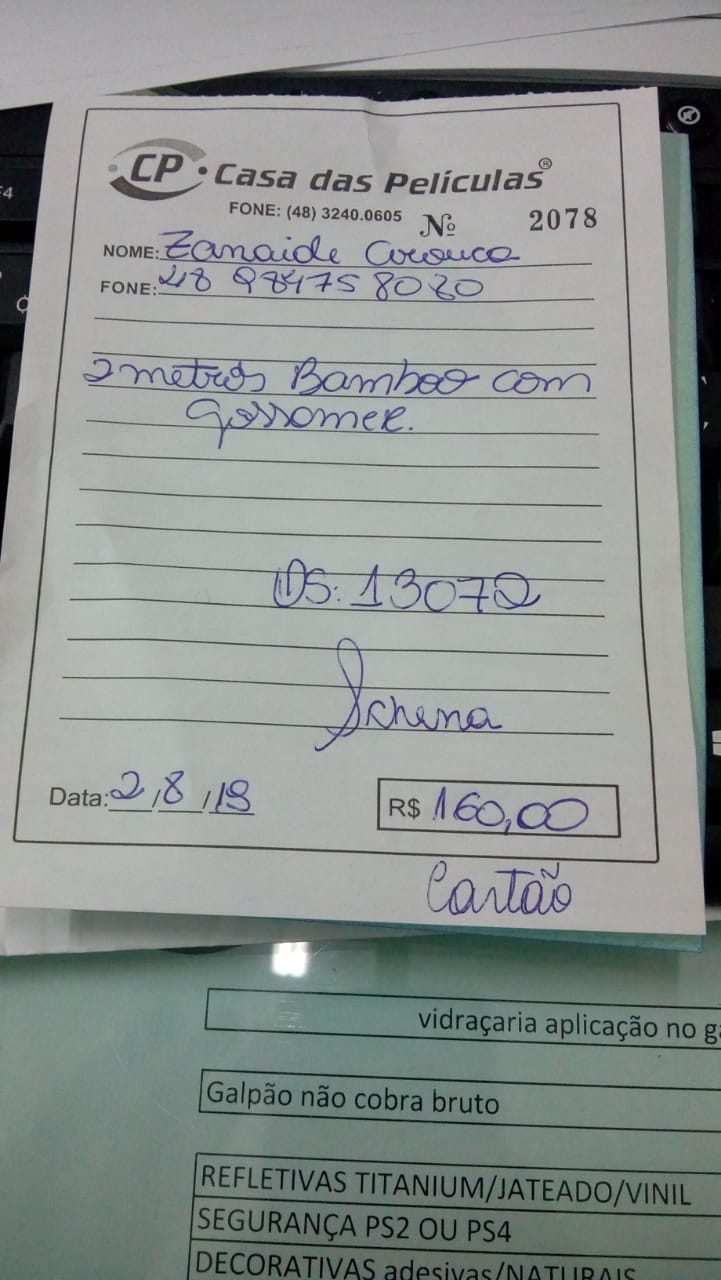 CP • Casa das Películas®
FONE: (48) 3240.0605 Nº 2078
NOME: Zanaide
FONE: 48 984758020
2 metros Bamboo com
Gossomer.
OS: 13072
Schena
Data: 2/8/19 R$ 160,00
Cartão
vidraçaria aplicação no
Galpão não cobra bruto
REFLETIVAS TITANIUM/JATEADO/VINIL
SEGURANÇA PS2 OU PS4
DECORATIVAS adesivas/NATURAIS